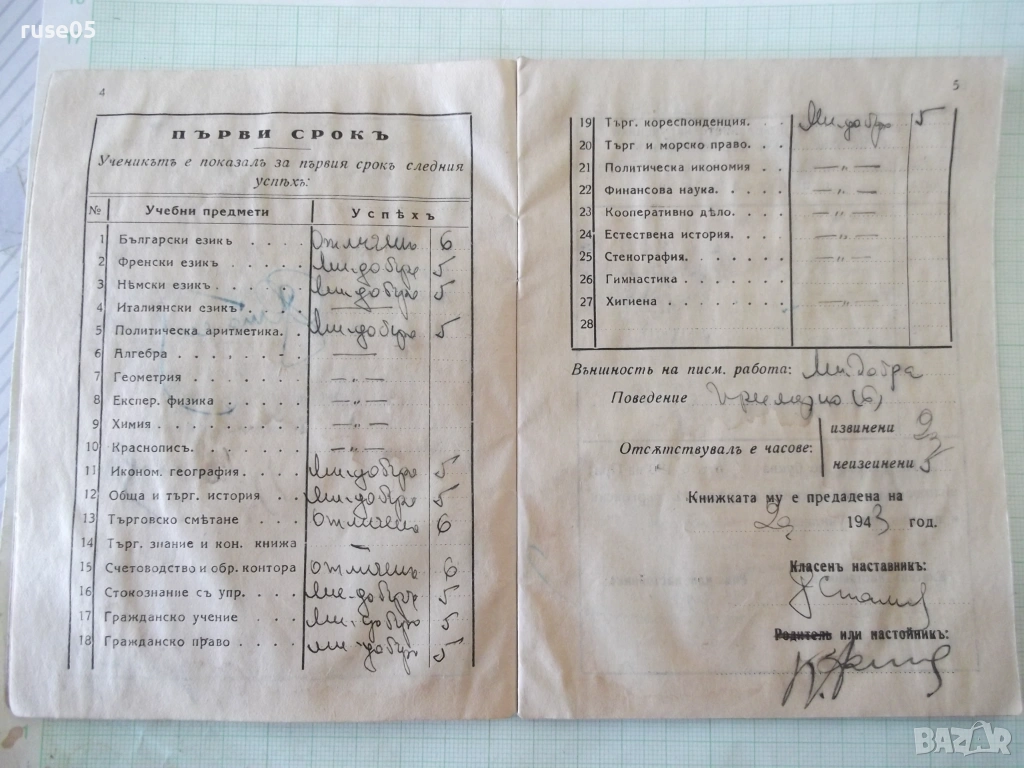 ruse05
4
ПЪРВИ СРОКЪ
Ученикътъ е показалъ за първия срокъ следния
успѣхъ:
№ Учебни предмети Успѣхъ
1 Български езикъ . . . . отличенъ 6
2 Френски езикъ . . . . . Мн. добъръ 5
3 Нѣмски езикъ . . . . . Мн. добъръ 5
4 Италиянски езикъ . . . —
5 Политическа аритметика. . Мн. добъръ 5
6 Алгебра . . . . . . . —
7 Геометрия . . . . . . — „ —
8 Експер. физика . . . . — „ —
9 Химия . . . . . . . — „ —
10 Краснописъ. . . . . . — „ —
11 Иконом. география . . . . Мн. добъръ 5
12 Обща и търг. история . . Мн. добъръ 5
13 Търговско смѣтане . . . отличенъ 6
14 Търг. знание и кон. книжа —
15 Счетоводство и обр. контора отличенъ 6
16 Стокознание съ упр. . . . Мн. добъръ 5
17 Гражданско учение . . . Мн. добъръ 5
18 Гражданско право . . . . мн добъръ 5
5
19 Търг. кореспонденция. . . Мн. добъръ 5
20 Търг и морско право. . . —
21 Политическа икономия . . — „ —
22 Финансова наука. . . . . — „ —
23 Кооперативно дѣло. . . . — „ —
24 Естествена история. . . . — „ —
25 Стенография. . . . . . — „ —
26 Гимнастика . . . . . .
27 Хигиена . . . . . . . — „ —
28
Външность на писм. работа: Мн. добра
Поведение Примѣрно (6)
извинени
Отсѫтствувалъ е часове:
неизвинени 5
Книжката му е предадена на
1943 год.
Класенъ наставникъ:
Родитель или настойникъ:
BAZAR